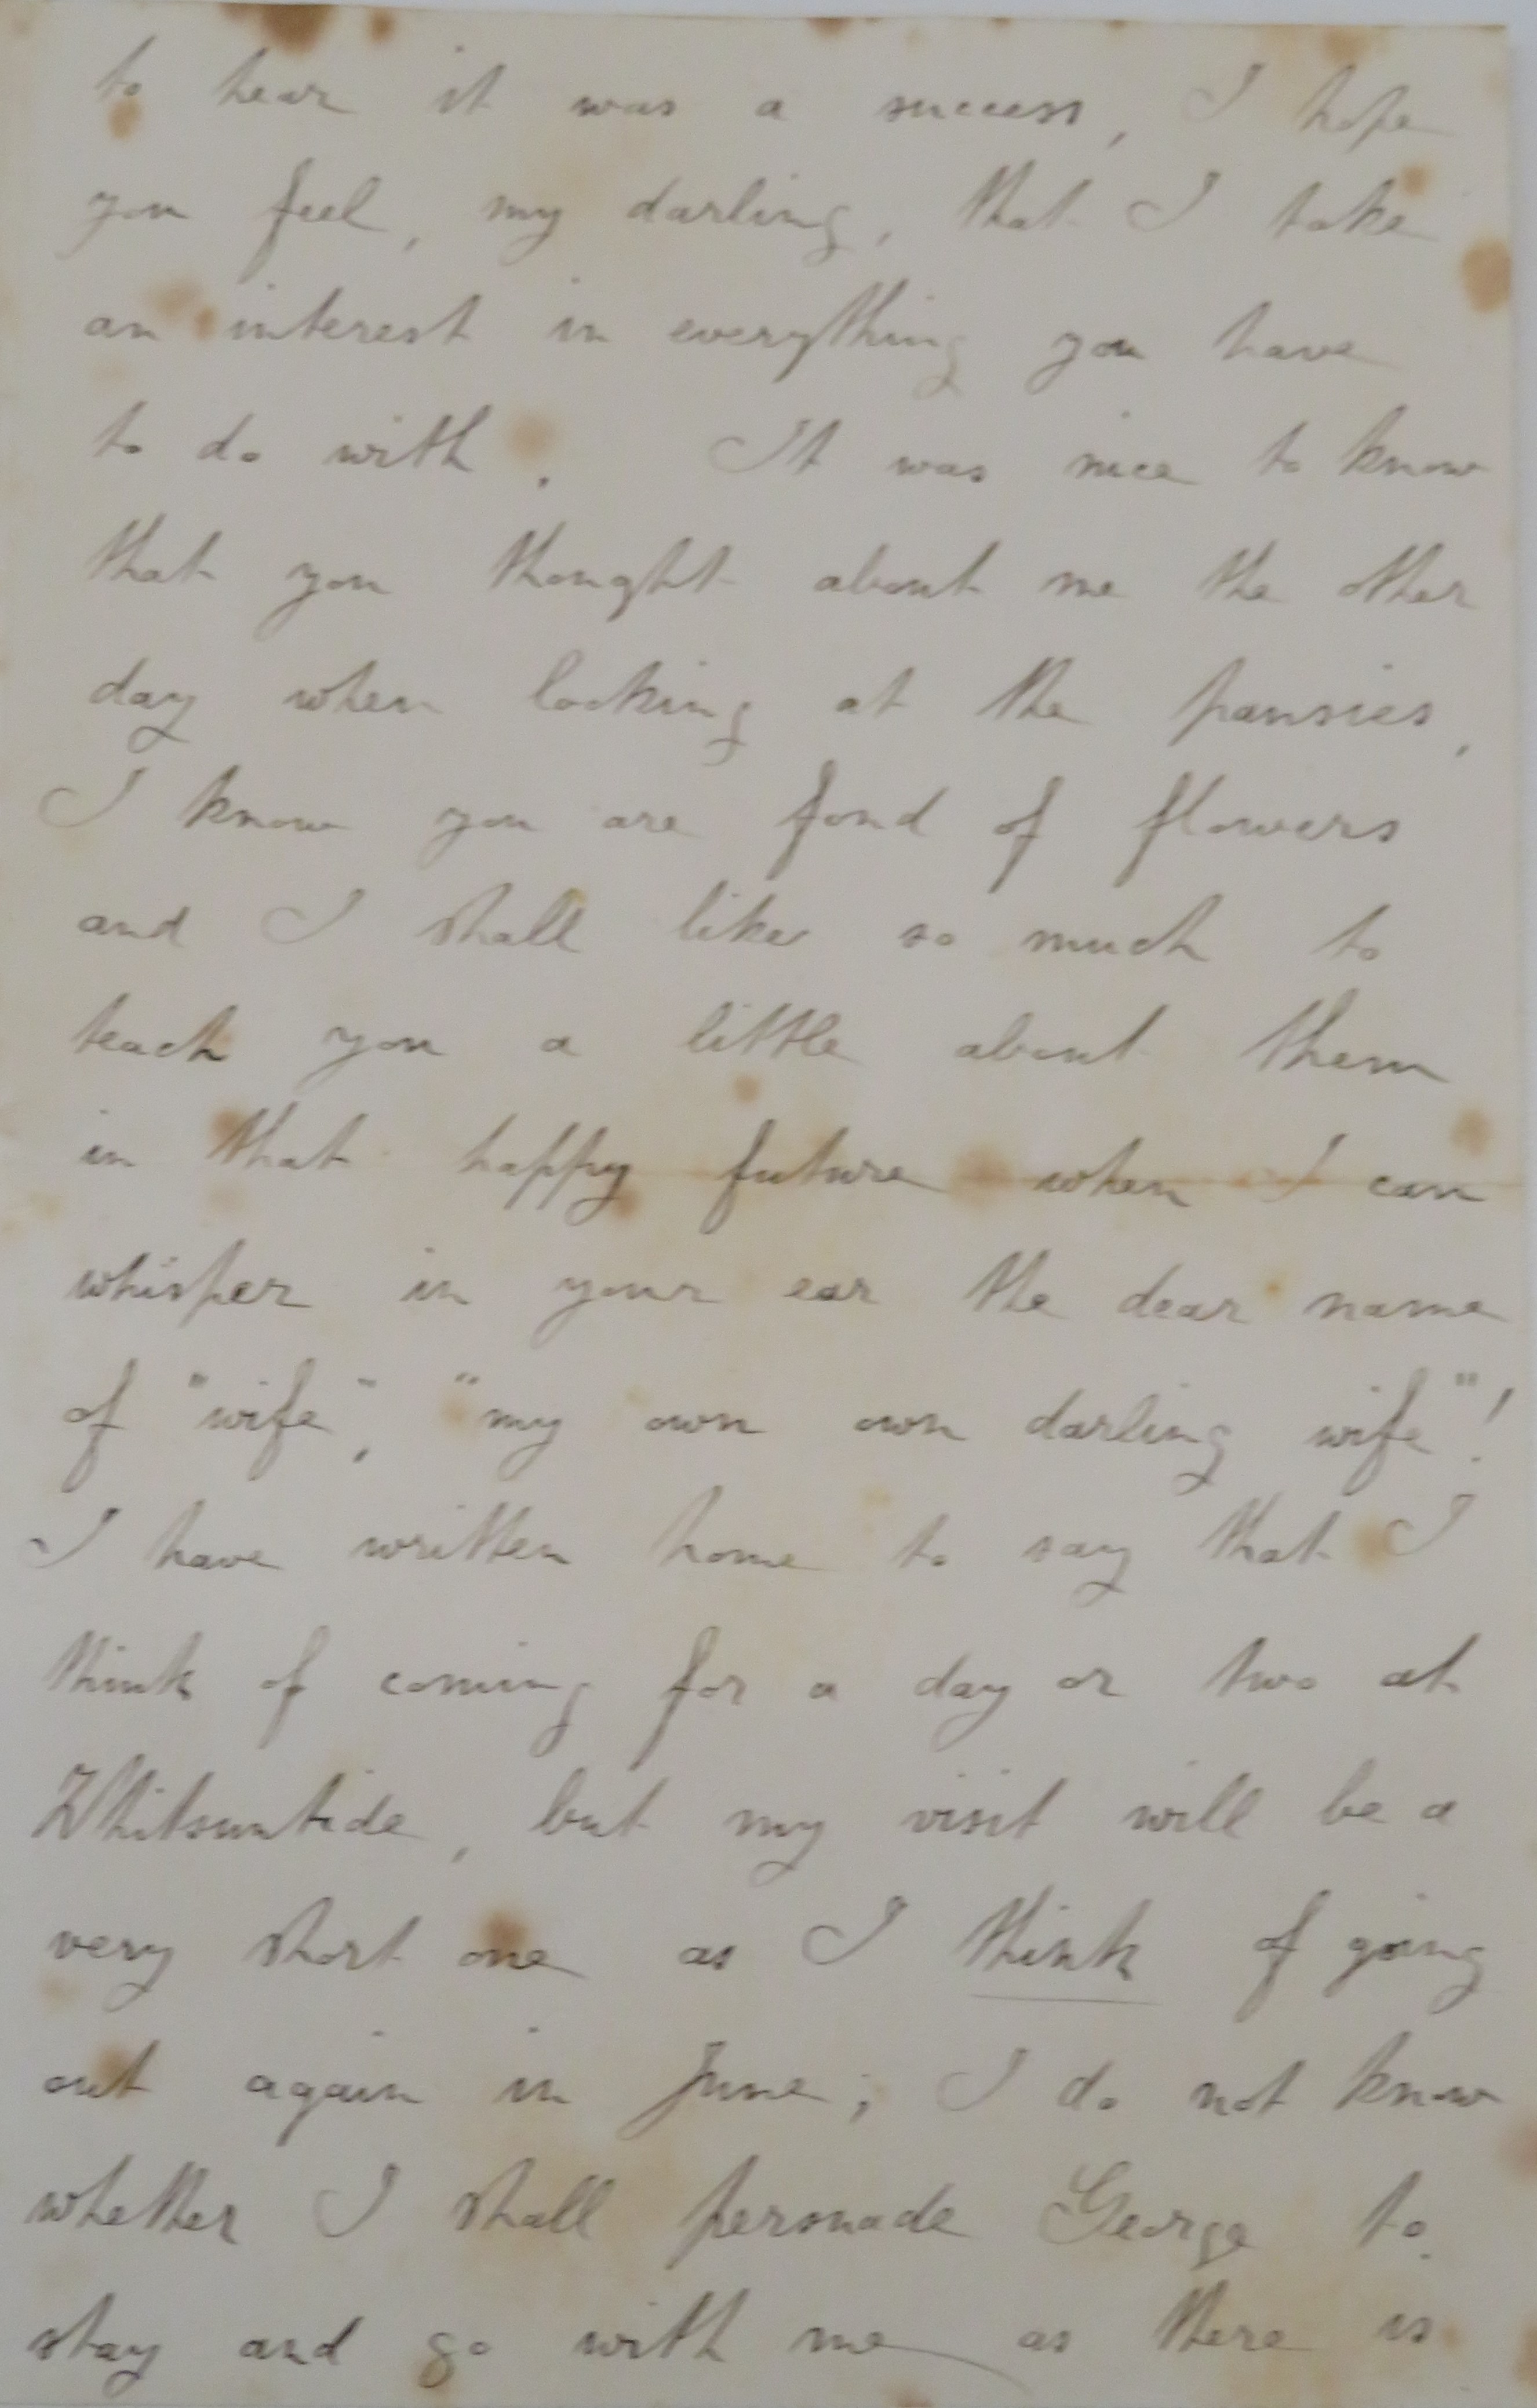 to hear it was a success, I hope
you feel, my darling, that I take
an interest in everything you have
to do with. It was nice to know
that you thought about me the other
day when looking at the pansies,
I know you are fond of flowers
and I shall like so much to
teach you a little about them
in that happy future when I can
whisper in your ear the dear name
of "wife", "my own own darling wife"!
I have written home to say that I
think of coming for a day or two at
Whitsuntide, but my visit will be a
very short one as I think of going
out again in June; I do not know
whether I shall persuade George to
stay and go with me as there is